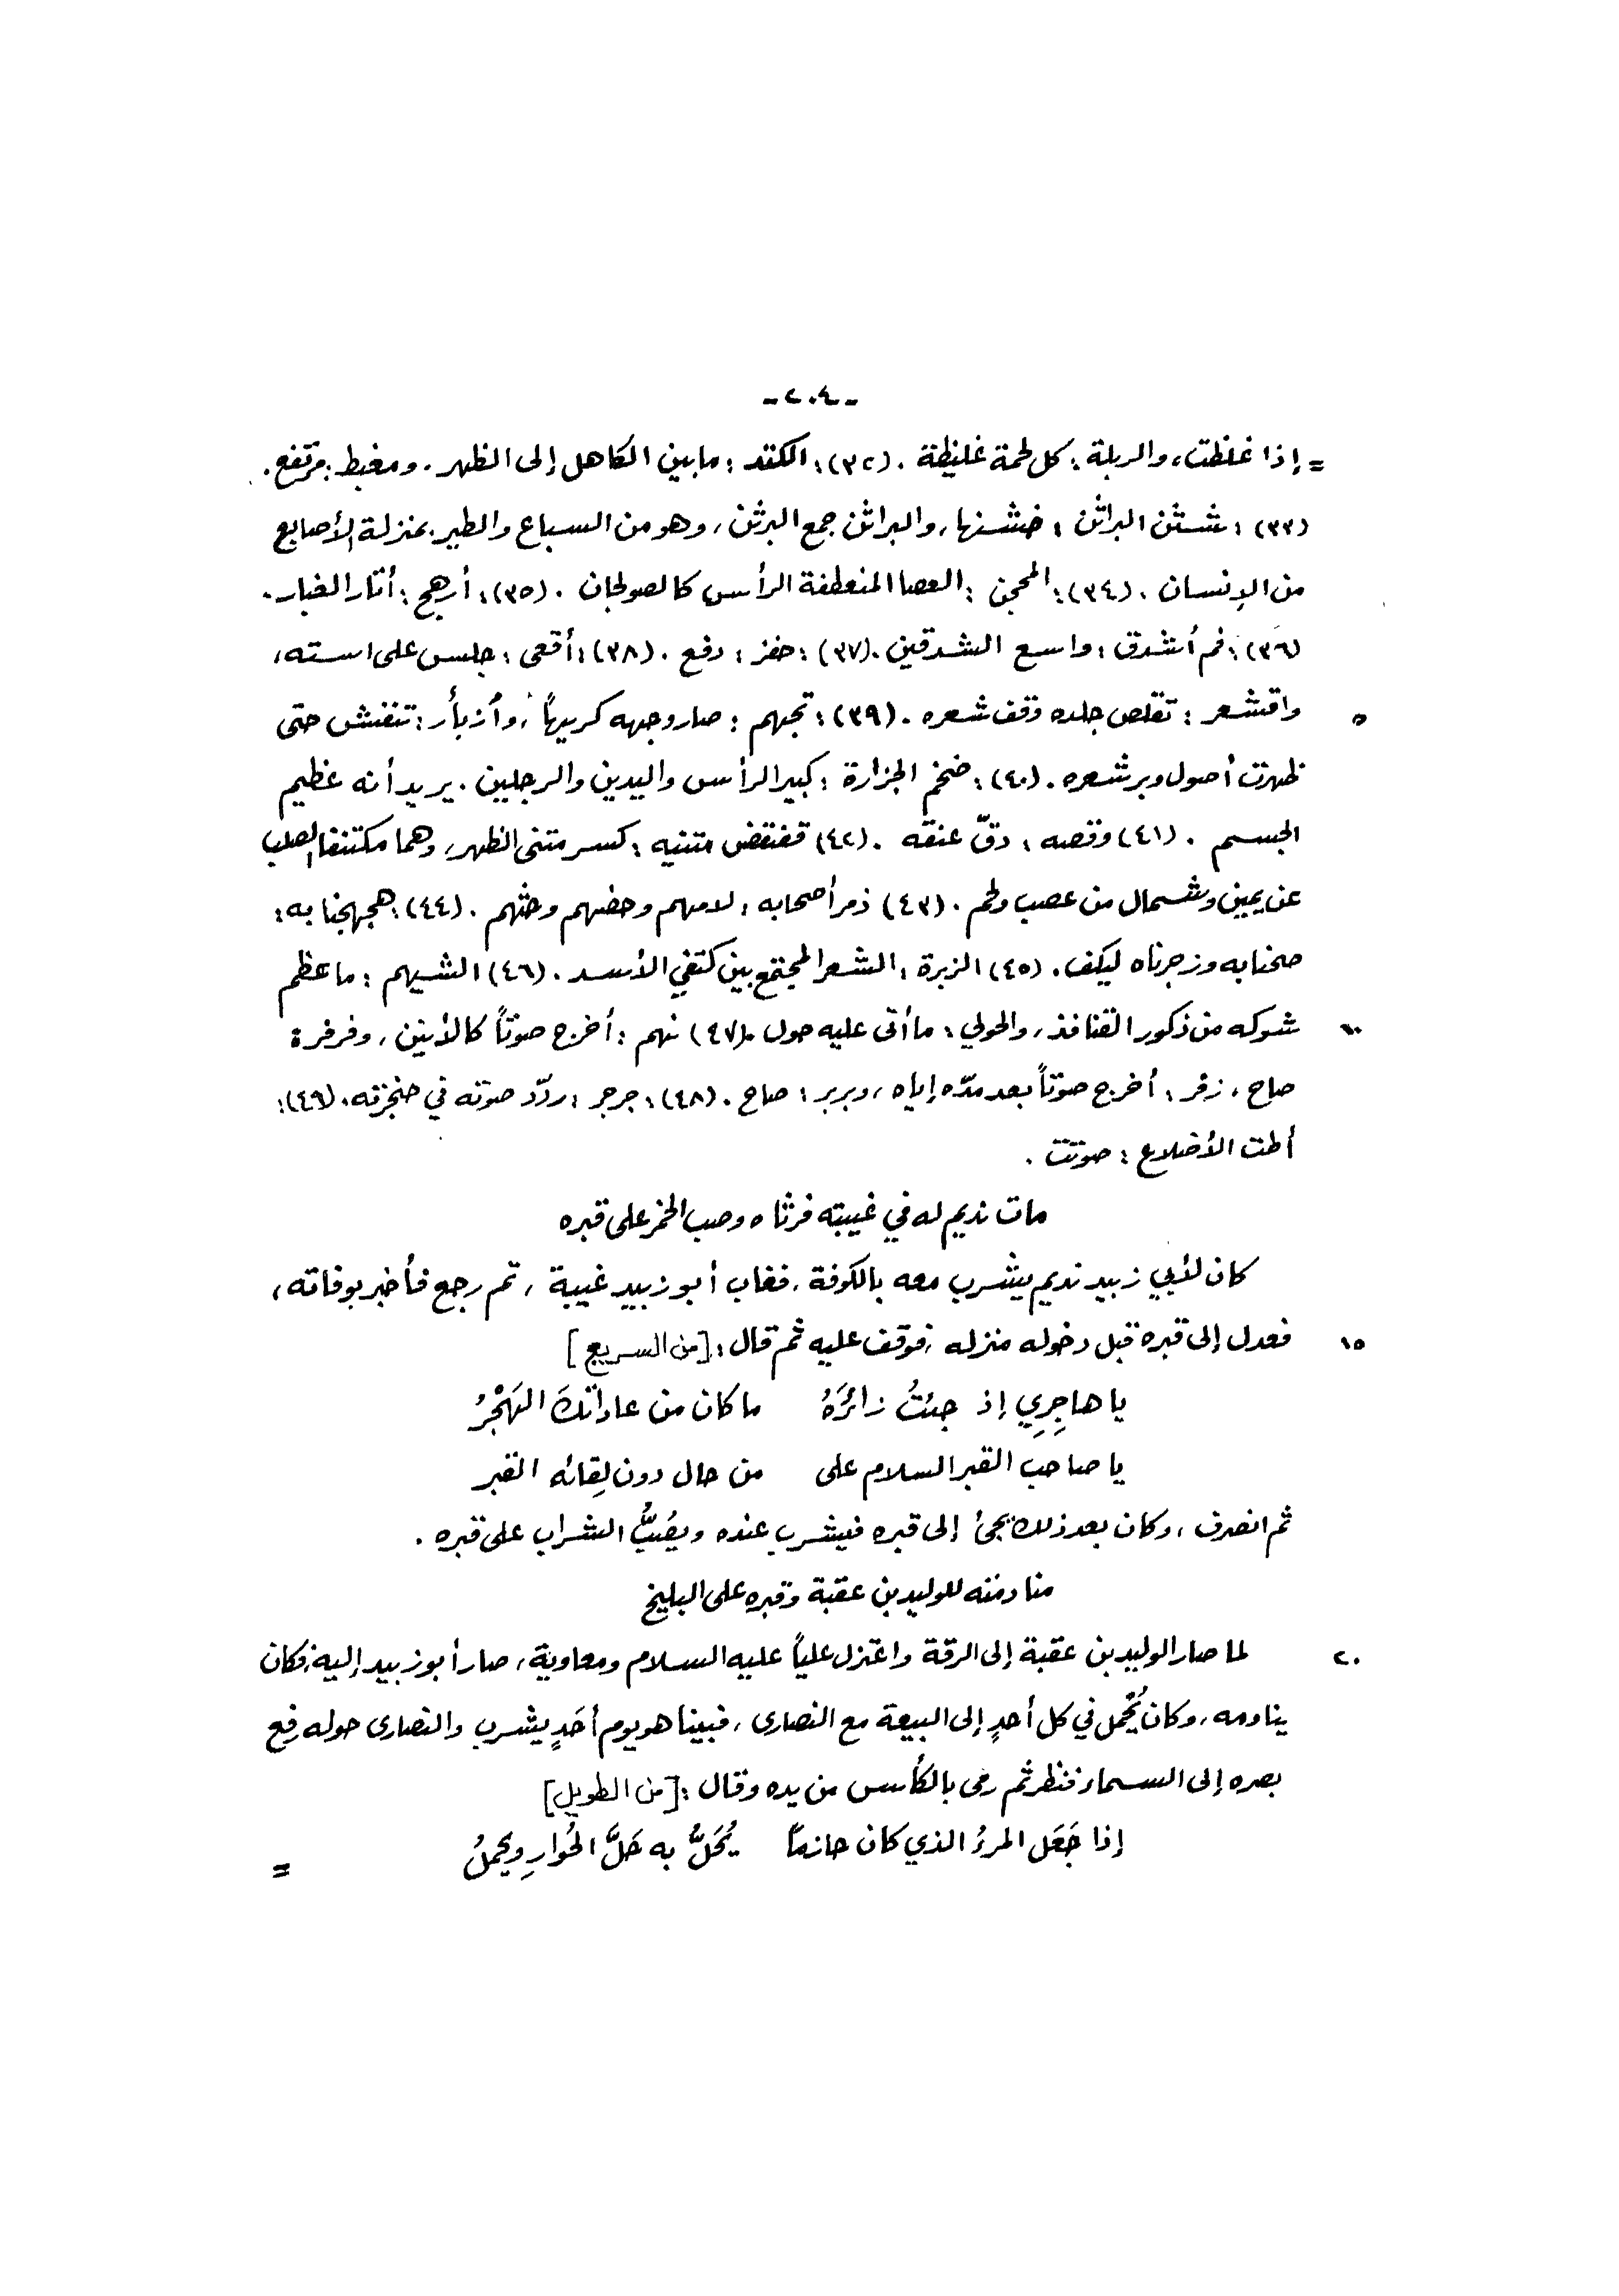 -٢٠٤-
= إذا غلظت، والربلة : كل لحمة غليظة . (٣٢): الكتد : ما بين الكاهل إلى الظهر . ومغبط : مرتفع .
(٣٣) : شثن البراثن : خشنها، والبراثن جمع البرثن، وهو من السباع والطير بمنزلة الأصابع
من الإنسان . (٣٤): المحجن : العصا المنعطفة الرأس كالصولجان . (٣٥): أرهج : أثار الغبار .
(٣٦): فم أشدق : واسع الشدقين . (٣٧) : حفز : دفع . (٣٨): أقعى : جلس على استه،
٥ واقشعر : تقلص جلده وقف شعره . (٣٩): تجهم : صار وجهه كريهاً، وأزبأر : تنفش حتى
ظهرت أصول وبر شعره . (٤٠): ضخم الجزارة : كبير الرأس واليدين والرجلين . يريد أنه عظيم
الجسم . (٤١) وقصه : دقّ عنقه . (٤٢) قضقض متنيه : كسر متني الظهر، وهما مكتنفا الصلب
عن يمين وشمال من عصب ولحم . (٤٣) ذمر أصحابه : لامهم وحضهم وحثهم . (٤٤): هجهجنا به :
صحنا به وزجرناه ليكف . (٤٥) الزبرة : الشعر المجتمع بين كتفي الأسد . (٤٦) الشيهم : ما عظم
١٠ شوكه من ذكور القنافذ، والحولي : ما أتى عليه حول . (٤٧) نهم : أخرج صوتاً كالأنين، وفرفرة :
صاح، زفر : أخرج صوتاً بعد مدّه إياه، وبربر : صاح . (٤٨): جرجر : ردّد صوته في حنجرته . (٤٩):
أطت الأضلاع : صوتت .
مات نديم له في غيبته فرثاه وصب الخمر على قبره
كان لأبي زبيد نديم يشرب معه بالكوفة، فغاب أبو زبيد غيبة، ثم رجع فأخبر بوفاته،
١٥ فعدل إلى قبره قبل دخوله منزله، فوقف عليه ثم قال : [من السريع]
يا هاجِرِي إذ جئتُ زائرَهُ ما كان من عاداتكَ الهَجْرُ
يا صاحب القبر السلام على من حال دون لِقائه القبر
ثم انصرف، وكان بعد ذلك يجئ إلى قبره فيشرب عنده ويصُبُّ الشراب على قبره .
منادمته للوليد بن عقبة وقبره على البليخ
٢٠ لما صار الوليد بن عقبة إلى الرقة واعتزل علياً عليه السلام ومعاوية، صار أبو زبيد إليه، فكان
ينادمه، وكان يُحمل في كل أحدٍ إلى البيعة مع النصارى، فبينا هو يوم أحَدٍ يشرب والنصارى حوله رفع
بصره إلى السماء فنظر ثم رمى بالكأس من يده وقال : [من الطويل]
إذا جَعَل المرءُ الذي كان حازماً يُحَلُّ به حَلَّ الحُوارِ ويحملُ
=